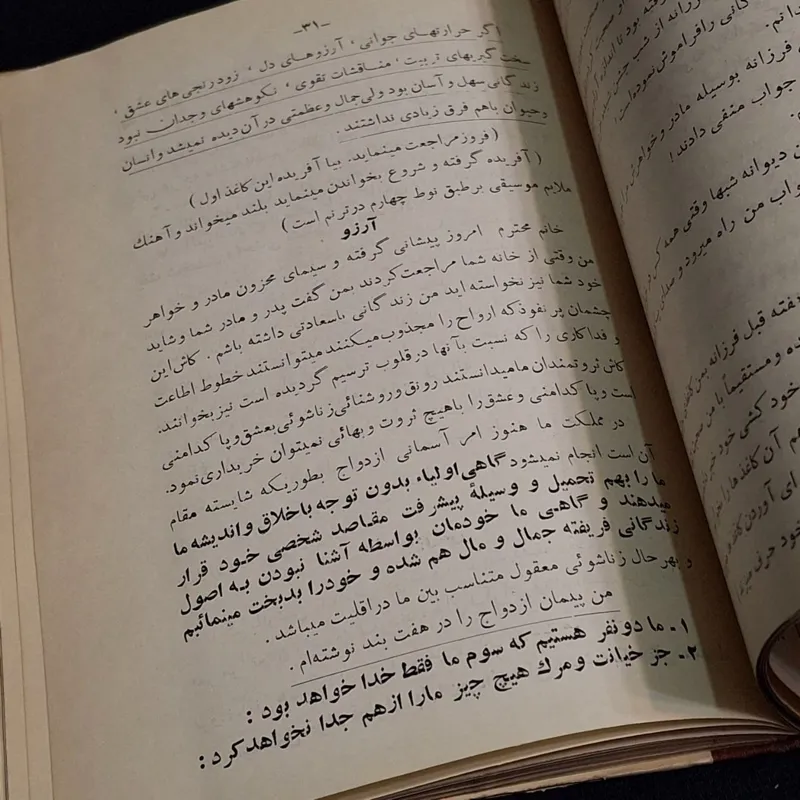 -۳۱-
اگر حرارتهای جوانی، آرزوهای دل، زودرنجی‌های عشق،
سخت گیریهای تربیت، مناقشات تقوی، نکوهشهای وجدان نبود
زندگانی سهل و آسان بود ولی جمال و عظمتی در آن دیده نمیشد و انسان
و حیوان باهم فرق زیادی نداشتند.
(فروز مراجعت مینماید. بیا آفریده این کاغذ اول)
(آفریده گرفته و شروع بخواندن مینماید بلند میخواند و آهنك
ملایم موسیقی برطبق نوط چهارم درترنم است)
آرزو
خانم محترم امروز پیشانی گرفته و سیمای محزون مادر و خواهر
من وقتی از خانه شما مراجعت کردند بمن گفت پدر و مادر شما و شاید
خود شما نیز نخواسته اید من زندگانی باسعادتی داشته باشم. کاش این
چشمان پر نفوذ که ارواح را مجذوب میکنند میتوانستند خطوط اطاعت
و فداکاری را که نسبت بآنها در قلوب ترسیم گردیده است نیز بخوانند.
کاش ثروتمندان ما میدانستند رونق و روشنائی زناشوئی بعشق و پاکدامنی
است و پاکدامنی و عشق را باهیچ ثروت و بهائی نمیتوان خریداری نمود.
در مملکت ما هنوز امر آسمانی ازدواج بطوریکه شایسته مقام
آن است انجام نمیشود گاهی اولیاء بدون توجه باخلاق و اندیشه ما
ما را بهم تحمیل و وسیلهٔ پیشرفت مقاصد شخصی خود قرار
میدهند و گاهی ما خودمان بواسطه آشنا نبودن به اصول
زندگانی فریفته جمال و مال هم شده و خودرا بدبخت مینمائیم
و بهر حال زناشوئی معقول متناسب بین ما در اقلیت میباشد.
من پیمان ازدواج را در هفت بند نوشته‌ام.
۱- ما دو نفر هستیم که سوم ما فقط خدا خواهد بود:
۲- جز خیانت و مرك هیچ چیز مارا ازهم جدا نخواهد کرد:
گانی را فراموش نموده است
فرزانه بوسیله مادر و خواهرش
جواب منفی دادند!
دیوانه شبها وقتی همه
واب من راه میرود و
هفته قبل فرزانه بمن کاغذ
ده و مستقیماً با من
خود کشی خود
هم آن کاغذها را
ای آوردن کاغذ
خود حرف میزند